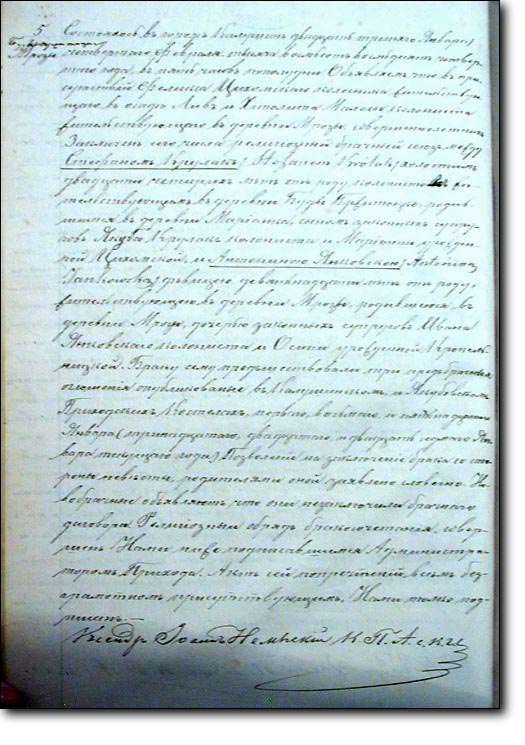 5
Мрозы
Состоялось въ городѣ Калушинѣ двадцать третьяго Января /
четвертаго Февраля тысяча восемьсотъ восемьдесятъ четвер-
таго года, въ пять часовъ пополудни. Объявляемъ что въ при-
сутствіи Феликса Цихомскаго колониста жительствую-
щаго въ осадѣ Ливъ и Хиполита Малоса колониста
жительствующаго въ деревнѣ Мрозы, совершеннолѣтнихъ
Заключенъ сего числа религіозный брачный союзъ между
Стефаномъ Крулакъ / Stefanem Królak / холостымъ
двадцати четырехъ лѣтъ отъ роду, колонистомъ жи-
тельствующимъ въ деревнѣ Буды родив-
шимся въ деревнѣ Маріанка, сыномъ законныхъ супру-
говъ Якуба Крулакъ колониста и Маріанны урожден-
ной Цихомской, и Антониною Янковскою / Antonina
Jankowska / дѣвицею девятнадцати лѣтъ отъ роду
жительствующею въ деревнѣ Мрозы, родившеюся въ
деревнѣ Мрозы, дочерью законныхъ супруговъ Ивана
Янковскаго колониста и урожденной
Браку сему предшествовали три предбрачныя
оглашенія опубликованные въ Калушинскомъ, и Якубовскомъ
Приходскихъ Костелахъ, перваго, восьмаго и пятнадцатаго
Января (тринадцатаго, двадцатаго и двадцать седьмаго Ян-
варя текущаго года). Позволеніе на заключеніе брака со сто-
роны невѣсты, родителями оной заявлено словесно. Но-
вобрачные объявляютъ что они незаключили брачнаго
договора. Религіозный обрядъ бракосочетанія совер-
шенъ Нами ниже подписавшимся Администра-
торомъ Прихода. Актъ сей по прочтеніи всѣмъ без-
грамотнымъ присутствующимъ, Нами только под-
писанъ.—
Ксендзъ К. П. А.